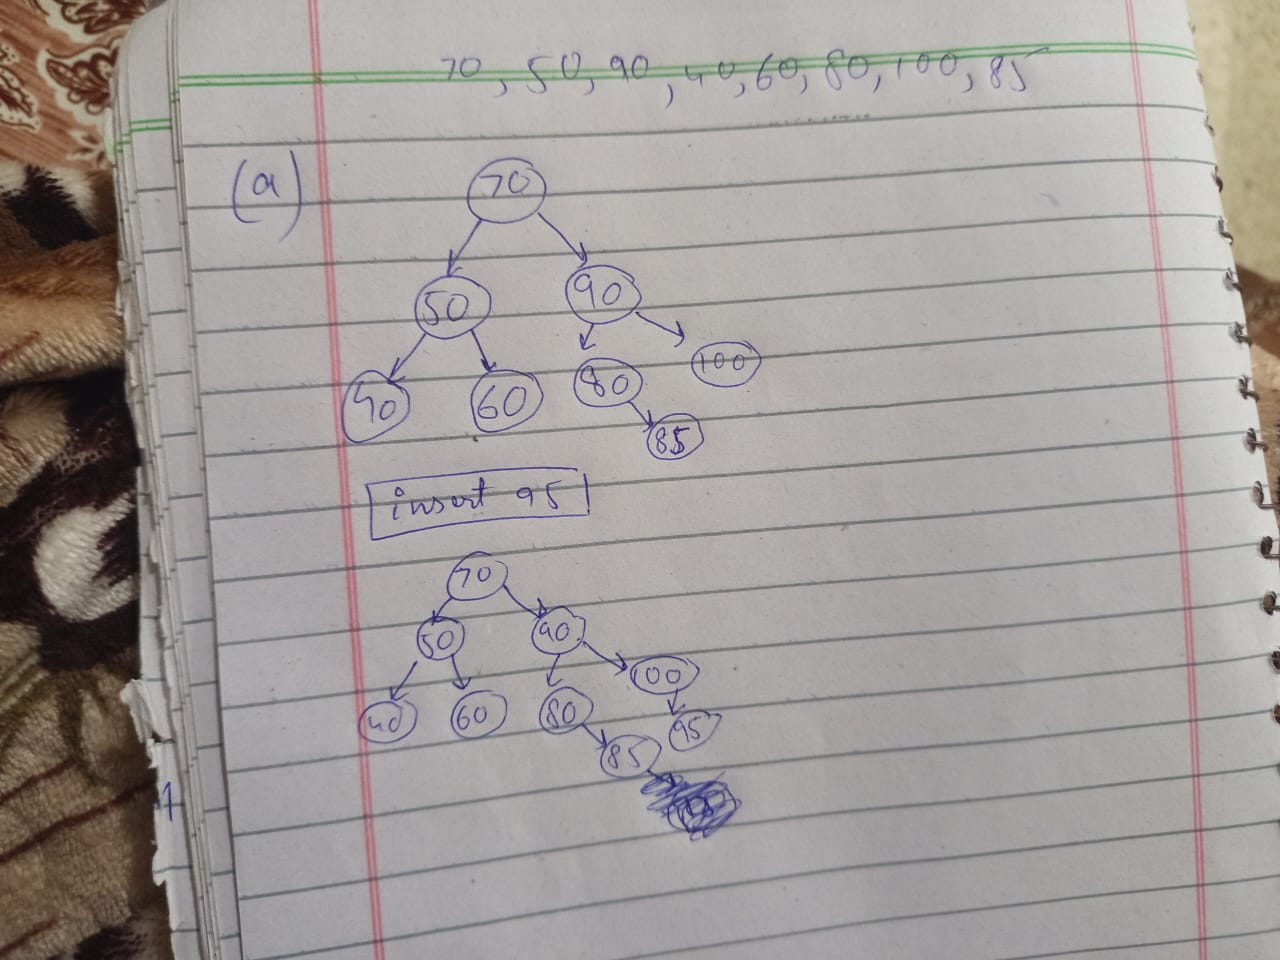 70, 50, 90, 40, 60, 80, 100, 85
(a)
70
50 90
40 60 80 100
85
insert 95
70
50 90
100
40 60 80 95
85
1